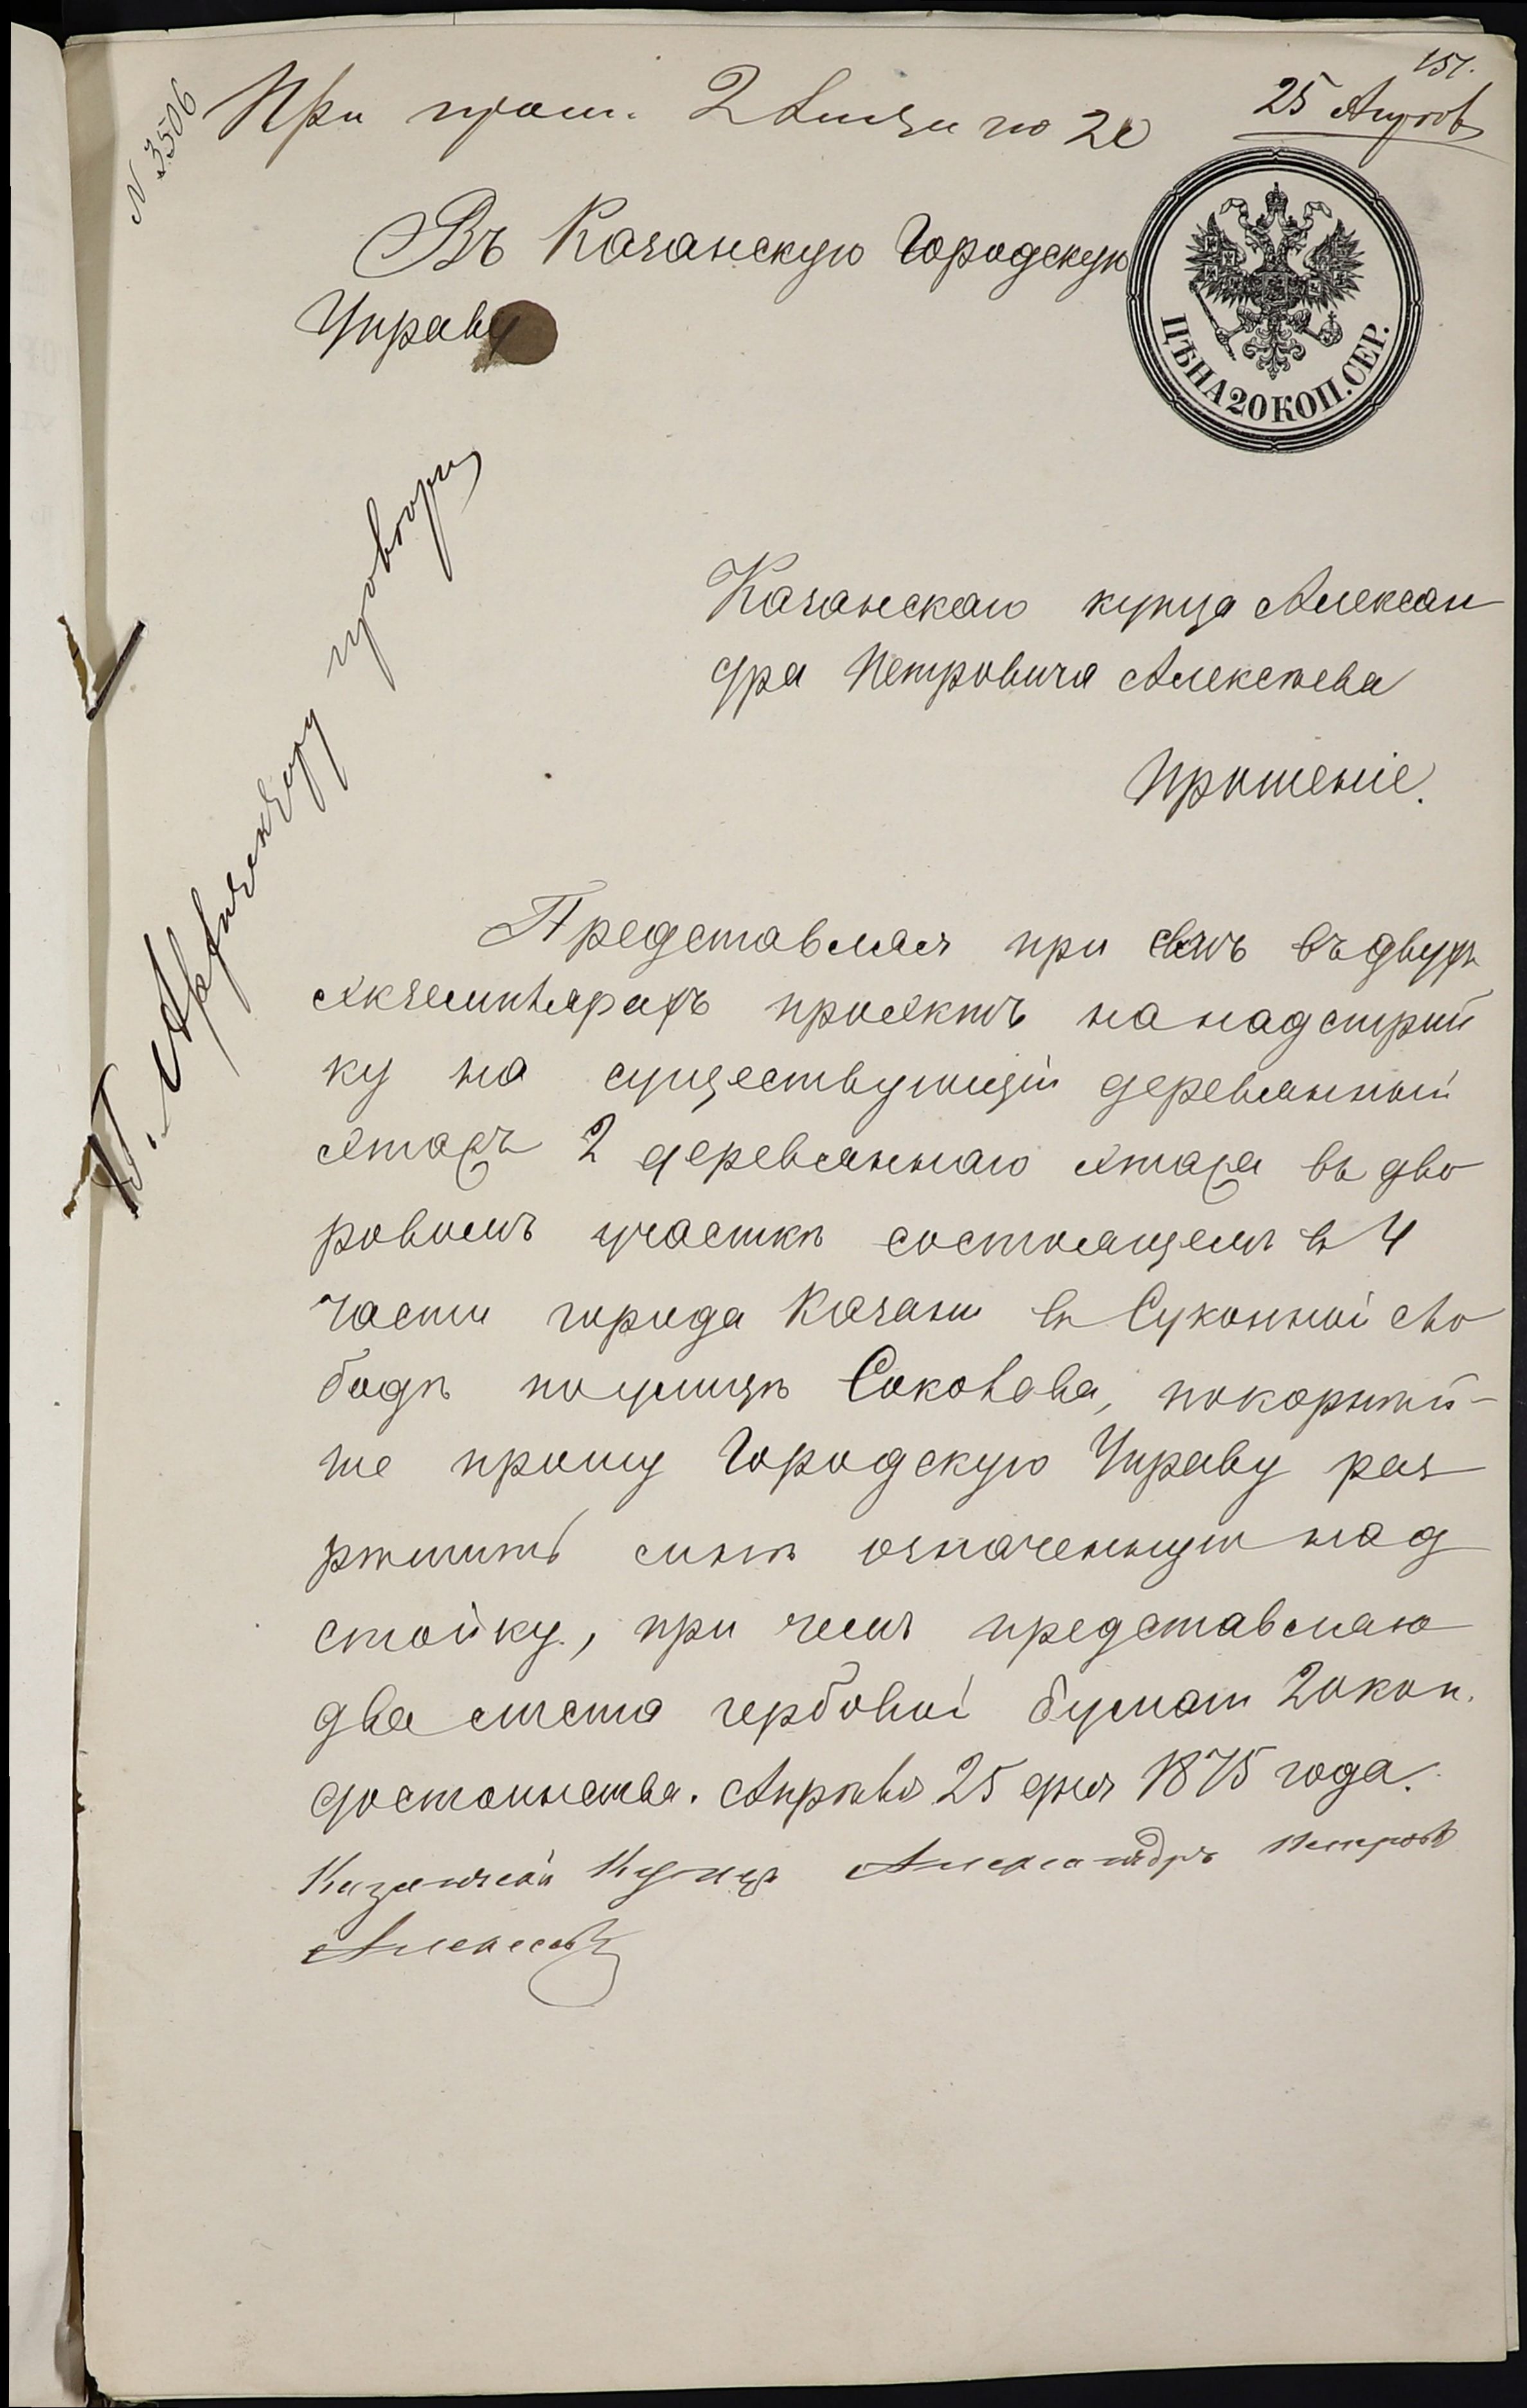 151.
25 Апрѣля
№ 3506
При прош. 2 листа по 20
Въ Казанскую Городскую
Управу
ЦѢНА 20 КОП. СЕР.
Казанскаго купца Алексан
дра Петровича Алексѣева
Прошеніе.
Г. Архитектору
Представляя при семъ въ двухъ
экземплярахъ проэктъ на надстрой
ку на существующій деревянный
этажъ 2 деревяннаго этажа въ дво
ровомъ участкѣ состоящемъ в 4
части города Казани въ Суконной сло
бодѣ по улицѣ Соколова, покорнѣй-
ше прошу Городскую Управу раз
рѣшить мнѣ означенную над
стойку, при чемъ представляю
два листа гербовой бумаги 20 коп.
достоинства. Апрѣля 25 дня 1875 года.
Казанской Купецъ Александръ Петровъ
Алексеевъ